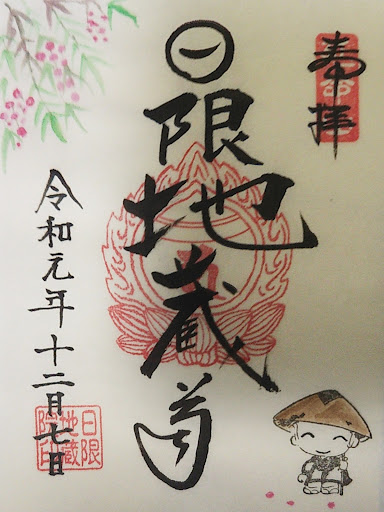 奉拝
日限地蔵尊
令和元年十二月七日
日限
地蔵
院印